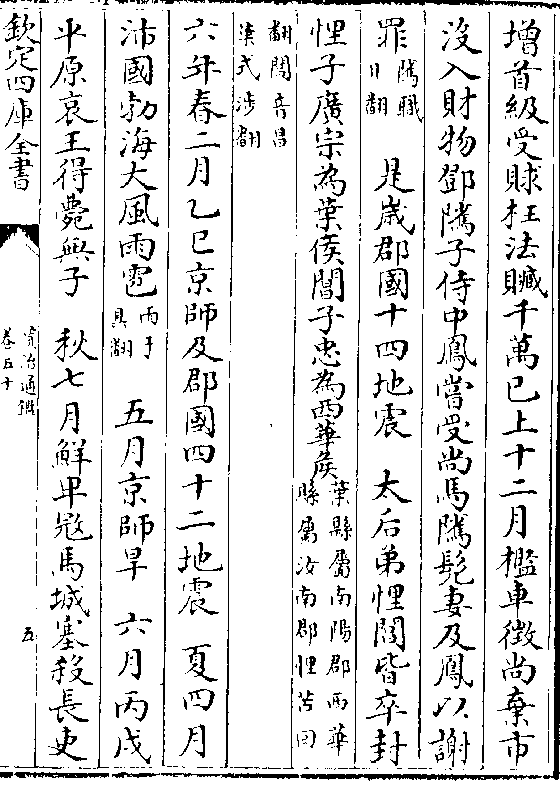 增首級受賕枉法贓千萬已上十二月檻車徵尚棄市
没入財物鄧隲子侍中鳳嘗受尚馬隲髠妻及鳳以謝
罪隲職日翻　是嵗郡國十四地震　太后弟悝閶皆卒封
悝子廣宗為葉侯閶子忠為西華侯葉縣屬南陽郡西華縣屬汝南郡悝苦回
翻閶音昌葉式涉翻
六年春二月乙巳京師及郡國四十二地震　夏四月
沛國勃海大風雨雹雨于具翻　五月京師旱　六月丙戌
平原哀王得薨無子　秋七月鮮卑寇馬城塞殺長吏
欽定四庫全書
資治通鑑
卷五十
五